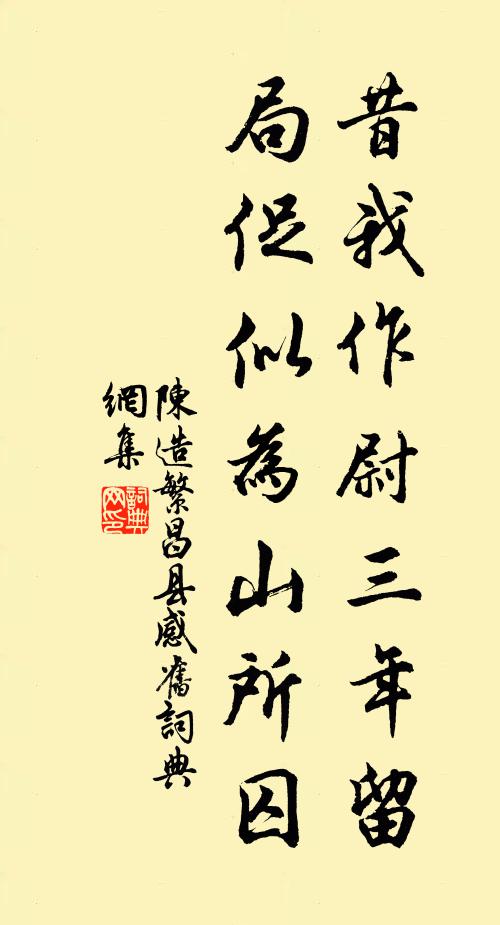 昔我作尉三年留
局促似為山所囚
陳造繁昌县感舊詞典
網集
詞典
网印